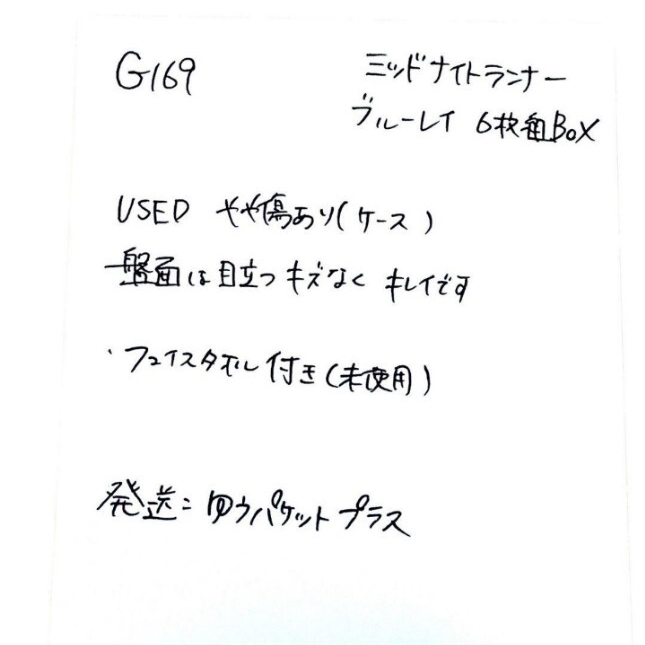 G169
ミッドナイトランナー
ブルーレイ 6枚組BOX
USED やや傷あり(ケース)
盤面は目立つキズなく キレイです
・フェイスタオル付き(未使用)
発送:ゆうパケットプラス